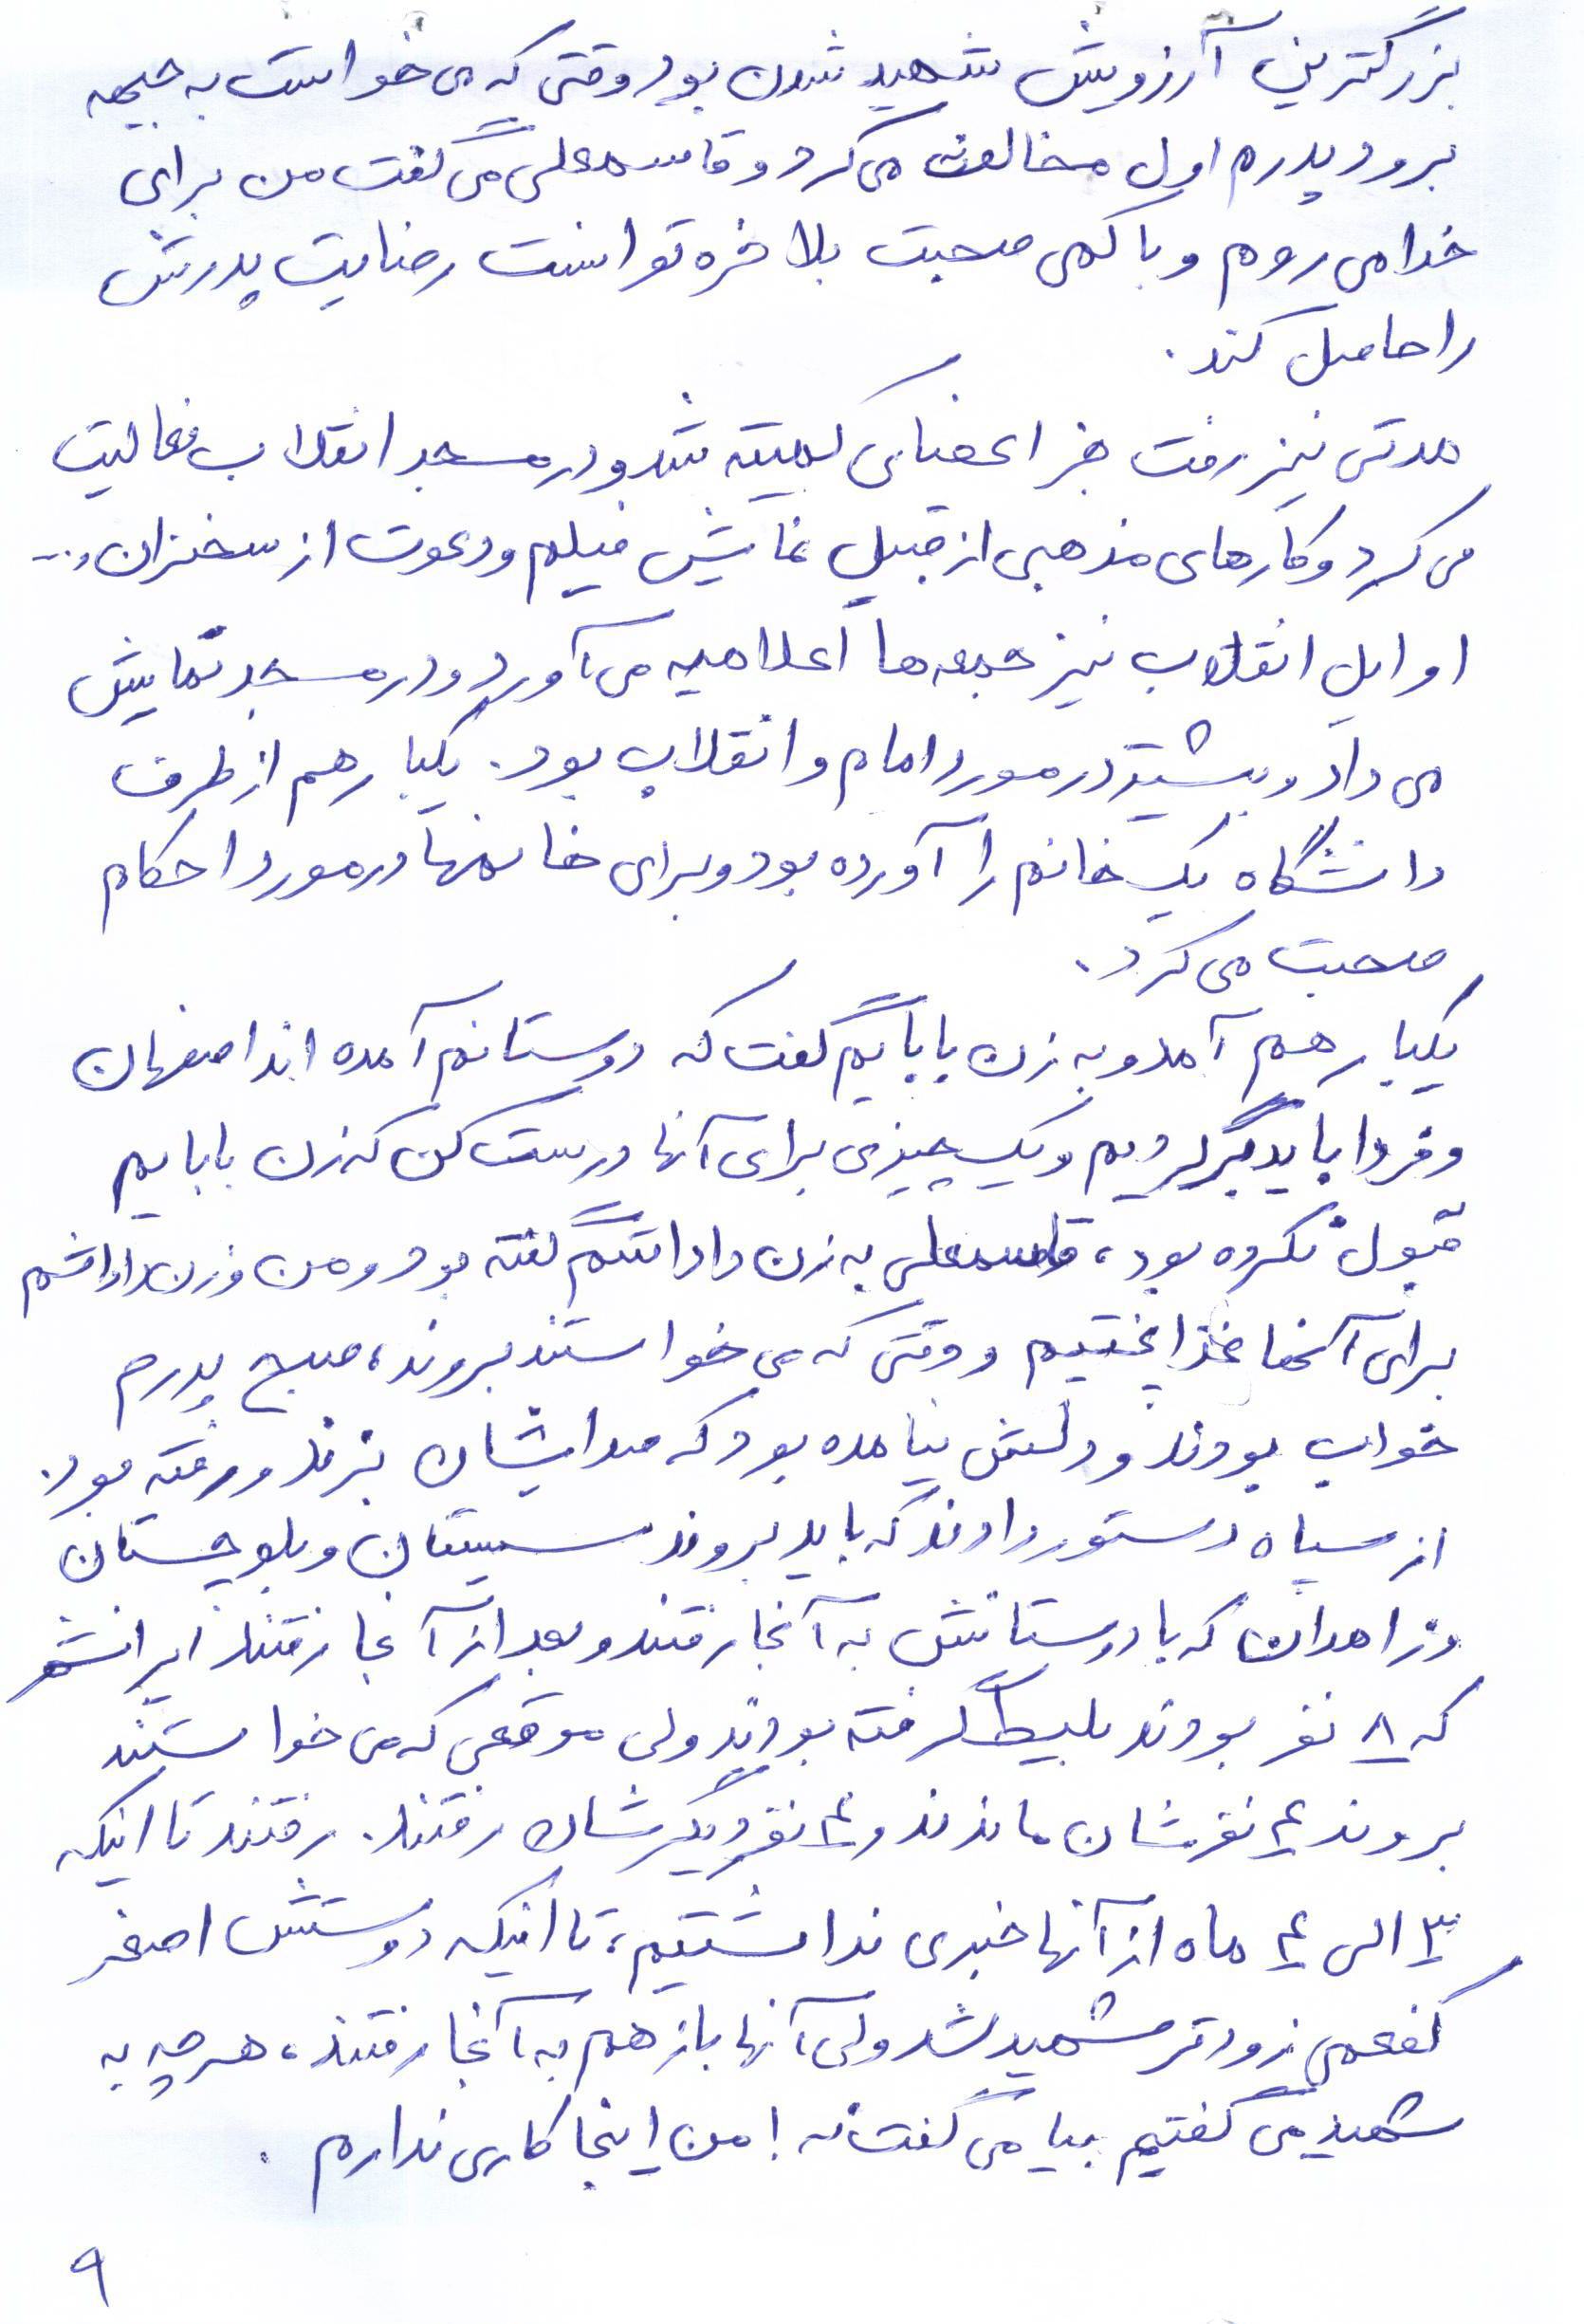 بزرگترین آرزویش شهید شدن بود وقتی که می خواست به جبهه
برود پدرم اول مخالفت می کرد و قاسمعلی می گفت من برای
خدا می روم و با کمی صحبت بلاخره توانست رضایت پدرش
را حاصل کند.
مدتی نیز رفت جز اعضای کمیته شد و در مسجد انقلاب فعالیت
می کرد و کارهای مذهبی از قبیل نمایش فیلم و دعوت از سخنران و...
اوایل انقلاب نیز جمعه ها اعلامیه می آورد و در مسجد نمایش
می داد و بیشتر در مورد امام و انقلاب بود. یکبار هم از طرف
دانشگاه یک خانم را آورده بود و برای خانمها در مورد احکام
صحبت می کرد.
یکبار هم آمد و به زن بابایم گفت که دوستانم آمده اند اصفهان
و فردا باید برگردیم و یک چیزی برای آنها درست کن که زن بابایم
قبول نکرده بود، قاسمعلی به زن داداشم گفته بود و من و زن داداشم
برای آنها غذا پختیم و وقتی که می خواستند بروند، صبح پدرم
خواب بودند و دلش نیامده بود که صدایشان بزند و رفته بود.
از سپاه دستور دادند که باید بروند سیستان و بلوچستان
و زاهدان که با دوستانش به آنجا رفتند و بعد از آنجا رفتند ایرانشهر
که ۸ نفر بودند بلیط گرفته بودند ولی موقعی که می خواستند
بروند ۴ نفرشان ماندند و ۴ نفر دیگرشان رفتند. رفتند تا اینکه
۳ الی ۴ ماه از آنها خبری نداشتیم، تا اینکه دوستش اصغر
لفعمی زودتر شهید شد ولی آنها باز هم به آنجا رفتند، هر چه به
شهید می گفتیم بیا می گفت نه! من اینجا کاری ندارم.
۹